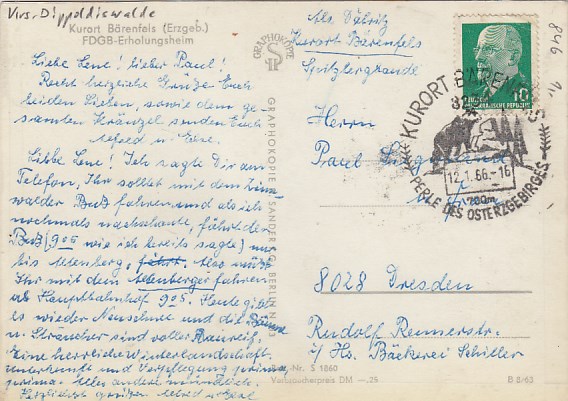 Krs. Dippoldiswalde
Kurort Bärenfels (Erzgeb.)
FDGB-Erholungsheim
Liebe Lene! Lieber Paul!
Recht herzliche Grüße Euch
beiden Lieben, sowie dem ge-
samten Kränzel senden Euch
Alfred u. Else.
Liebe Lene! Ich sagte Dir am
Telefon, Ihr solltet mit dem Zinn-
walder Bus fahren, und als ich
nochmals nachschaute, fährt der
Bus (9 05 wie ich bereits sagte) nur
bis Altenberg. Also müßt
Ihr mit dem Altenberger fahren
ab Hauptbahnhof 9 05. Heute gibt
es wieder Neuschnee und die Bäume
u. Sträucher sind voller Rauhreif.
Eine herrliche Winterlandschaft.
Unterkunft und Verpflegung prima,
prima. Alles andere mündlich.
Herzlichst grüßen
GRAPHOKOPIE
GRAPHOKOPIE H. SANDER KG, BERLIN
Als.
Kurort Bärenfels
Spitzbergbaude
Herrn
Paul
8028 Dresden
Rudolf Rennerstr.
i/ Hs. Bäckerei Schiller
Best.-Nr. S 1860
Verbraucherpreis DM —,25
B 8/63
846
10
DEUTSCHE
DEMOKRATISCHE REPUBLIK
KURORT BÄRENFELS
12.1.66.-16
700m
PERLE DES OSTERZGEBIRGES